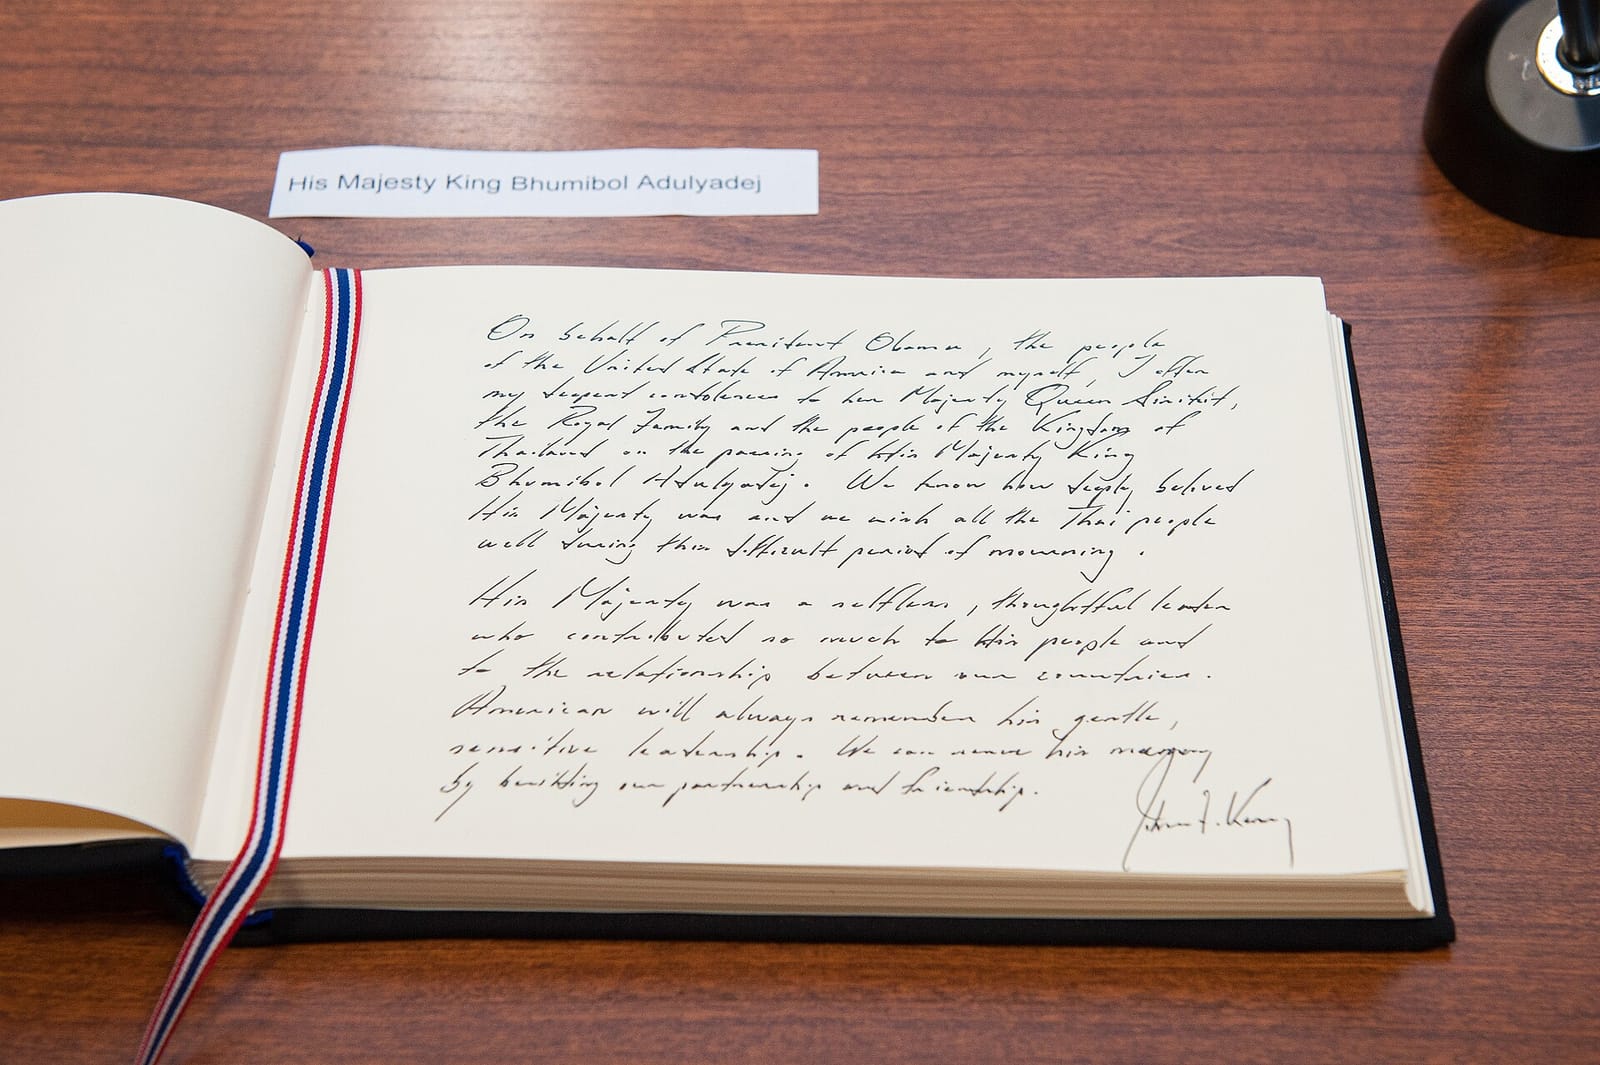 His Majesty King Bhumibol Adulyadej
On behalf of President Obama, the people
of the United State of America and myself, I offer
my deepest condolences to her Majesty Queen Sirikit,
the Royal Family and the people of the Kingdom of
Thailand on the passing of His Majesty King
Bhumibol Adulyadej. We know how deeply beloved
His Majesty was and we wish all the Thai people
well during this difficult period of mourning.
His Majesty was a selfless, thoughtful leader
who contributed so much to His people and
to the relationship between our countries.
Americans will always remember his gentle,
sensitive leadership. We can honor his memory
by building our partnership and friendship.
John F. Kerry